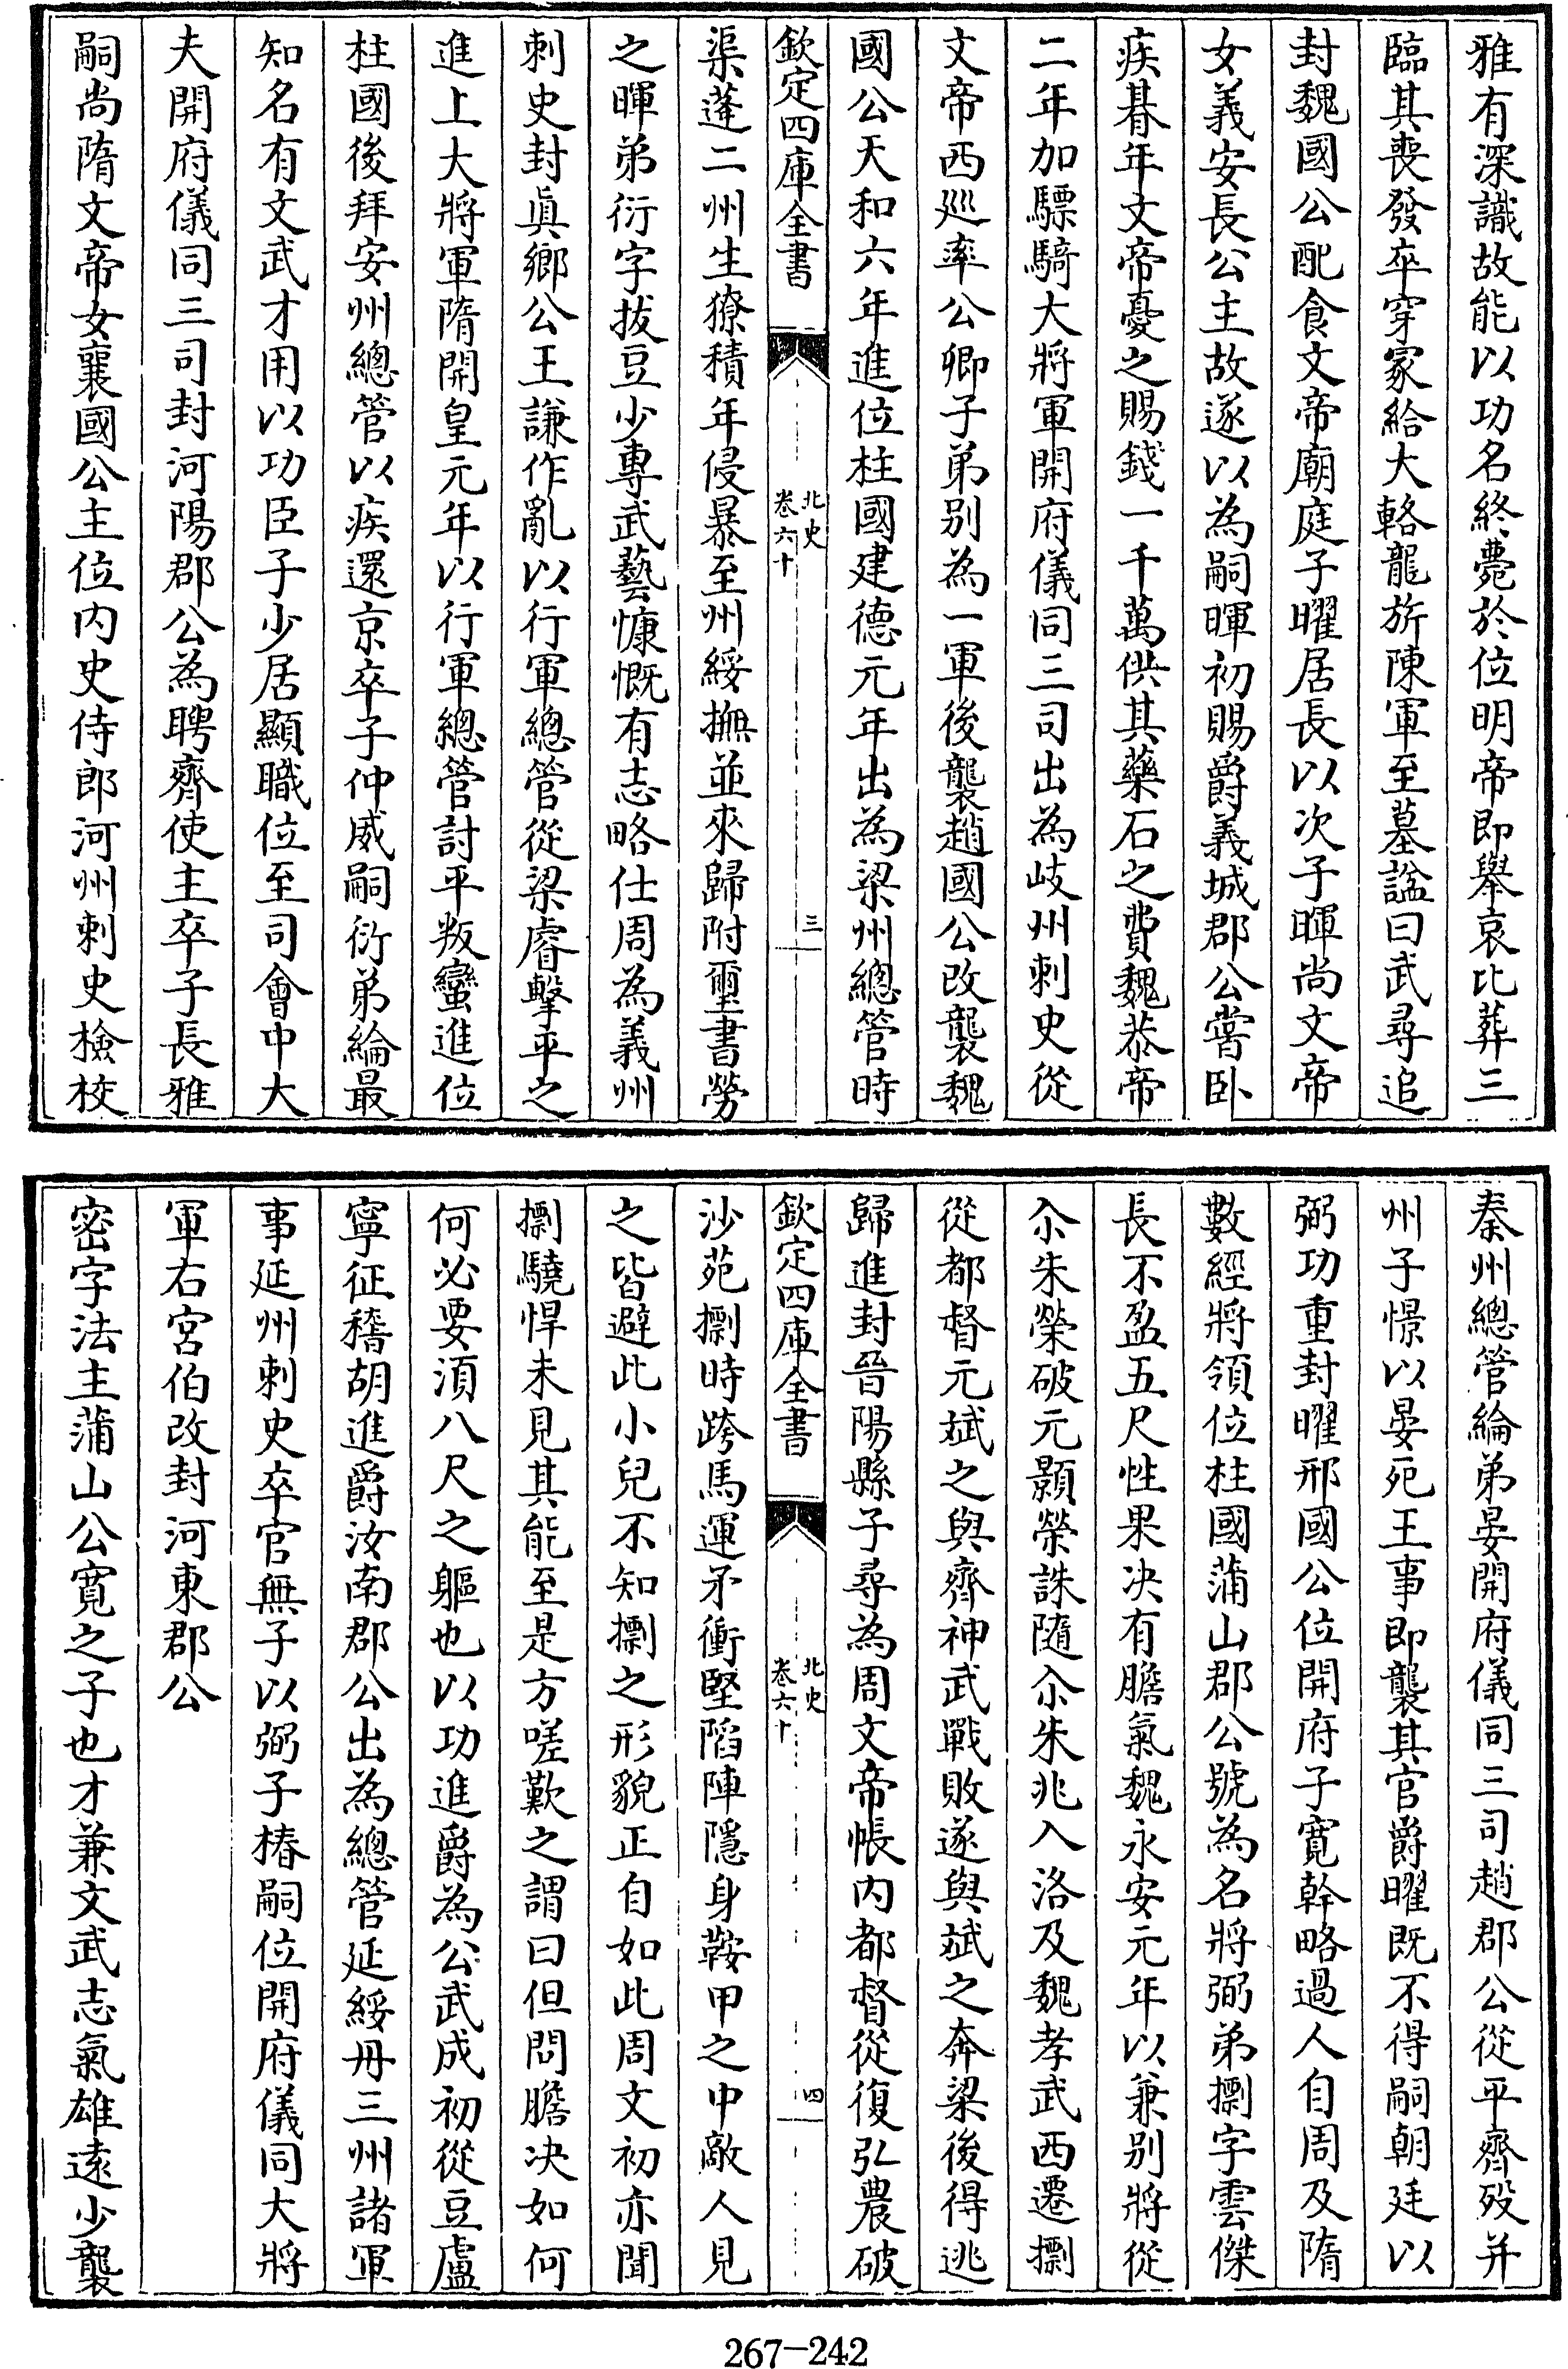 雅有深識故能以功名終薨於位明帝即舉哀比葬三
臨其喪發卒穿冢給大輅龍旂陳軍至墓諡曰武尋追
封魏國公配食文帝廟庭子曜居長以次子暉尚文帝
女義安長公主故遂以為嗣暉初賜爵義城郡公嘗卧
疾朞年文帝憂之賜錢一千萬供其藥石之費魏恭帝
二年加驃騎大將軍開府儀同三司出為岐州刺史從
文帝西廵率公卿子弟别為一軍後襲趙國公改襲魏
國公天和六年進位柱國建德元年出為梁州總管時
欽定四庫全書
北史
卷六十
三
渠蓬二州生獠積年侵暴至州綏撫並來歸附璽書勞
之暉弟衍字拔豆少專武藝慷慨有志略仕周為義州
刺史封真鄉公王謙作亂以行軍總管從梁睿擊平之
進上大將軍隋開皇元年以行軍總管討平叛蠻進位
柱國後拜安州總管以疾還京卒子仲威嗣衍弟綸最
知名有文武才用以功臣子少居顯職位至司會中大
夫開府儀同三司封河陽郡公為聘齊使主卒子長雅
嗣尚隋文帝女襄國公主位内史侍郎河州刺史檢校
秦州總管綸弟晏開府儀同三司趙郡公從平齊殁并
州子憬以晏死王事即襲其官爵曜既不得嗣朝廷以
弼功重封曜邢國公位開府子寛幹略過人自周及隋
數經將領位柱國蒲山郡公號為名將弼弟㯹字雲傑
長不盈五尺性果决有膽氣魏永安元年以兼别將從
尒朱榮破元顥榮誅隨尒朱兆入洛及魏孝武西遷㯹
從都督元斌之與齊神武戰敗遂與斌之奔梁後得逃
歸進封晉陽縣子尋為周文帝帳内都督從復弘農破
欽定四庫全書
北史
卷六十
四
沙苑㯹時跨馬運矛衝堅陷陣隱身鞍甲之中敵人見
之皆避此小兒不知㯹之形貌正自如此周文初亦聞
㯹驍悍未見其能至是方嗟歎之謂曰但問膽决如何
何必要須八尺之軀也以功進爵為公武成初從豆盧
寧征稽胡進爵汝南郡公出為總管延綏丹三州諸軍
事延州刺史卒官無子以弼子椿嗣位開府儀同大將
軍右宫伯改封河東郡公
密字法主蒲山公寛之子也才兼文武志氣雄遠少襲
267-242